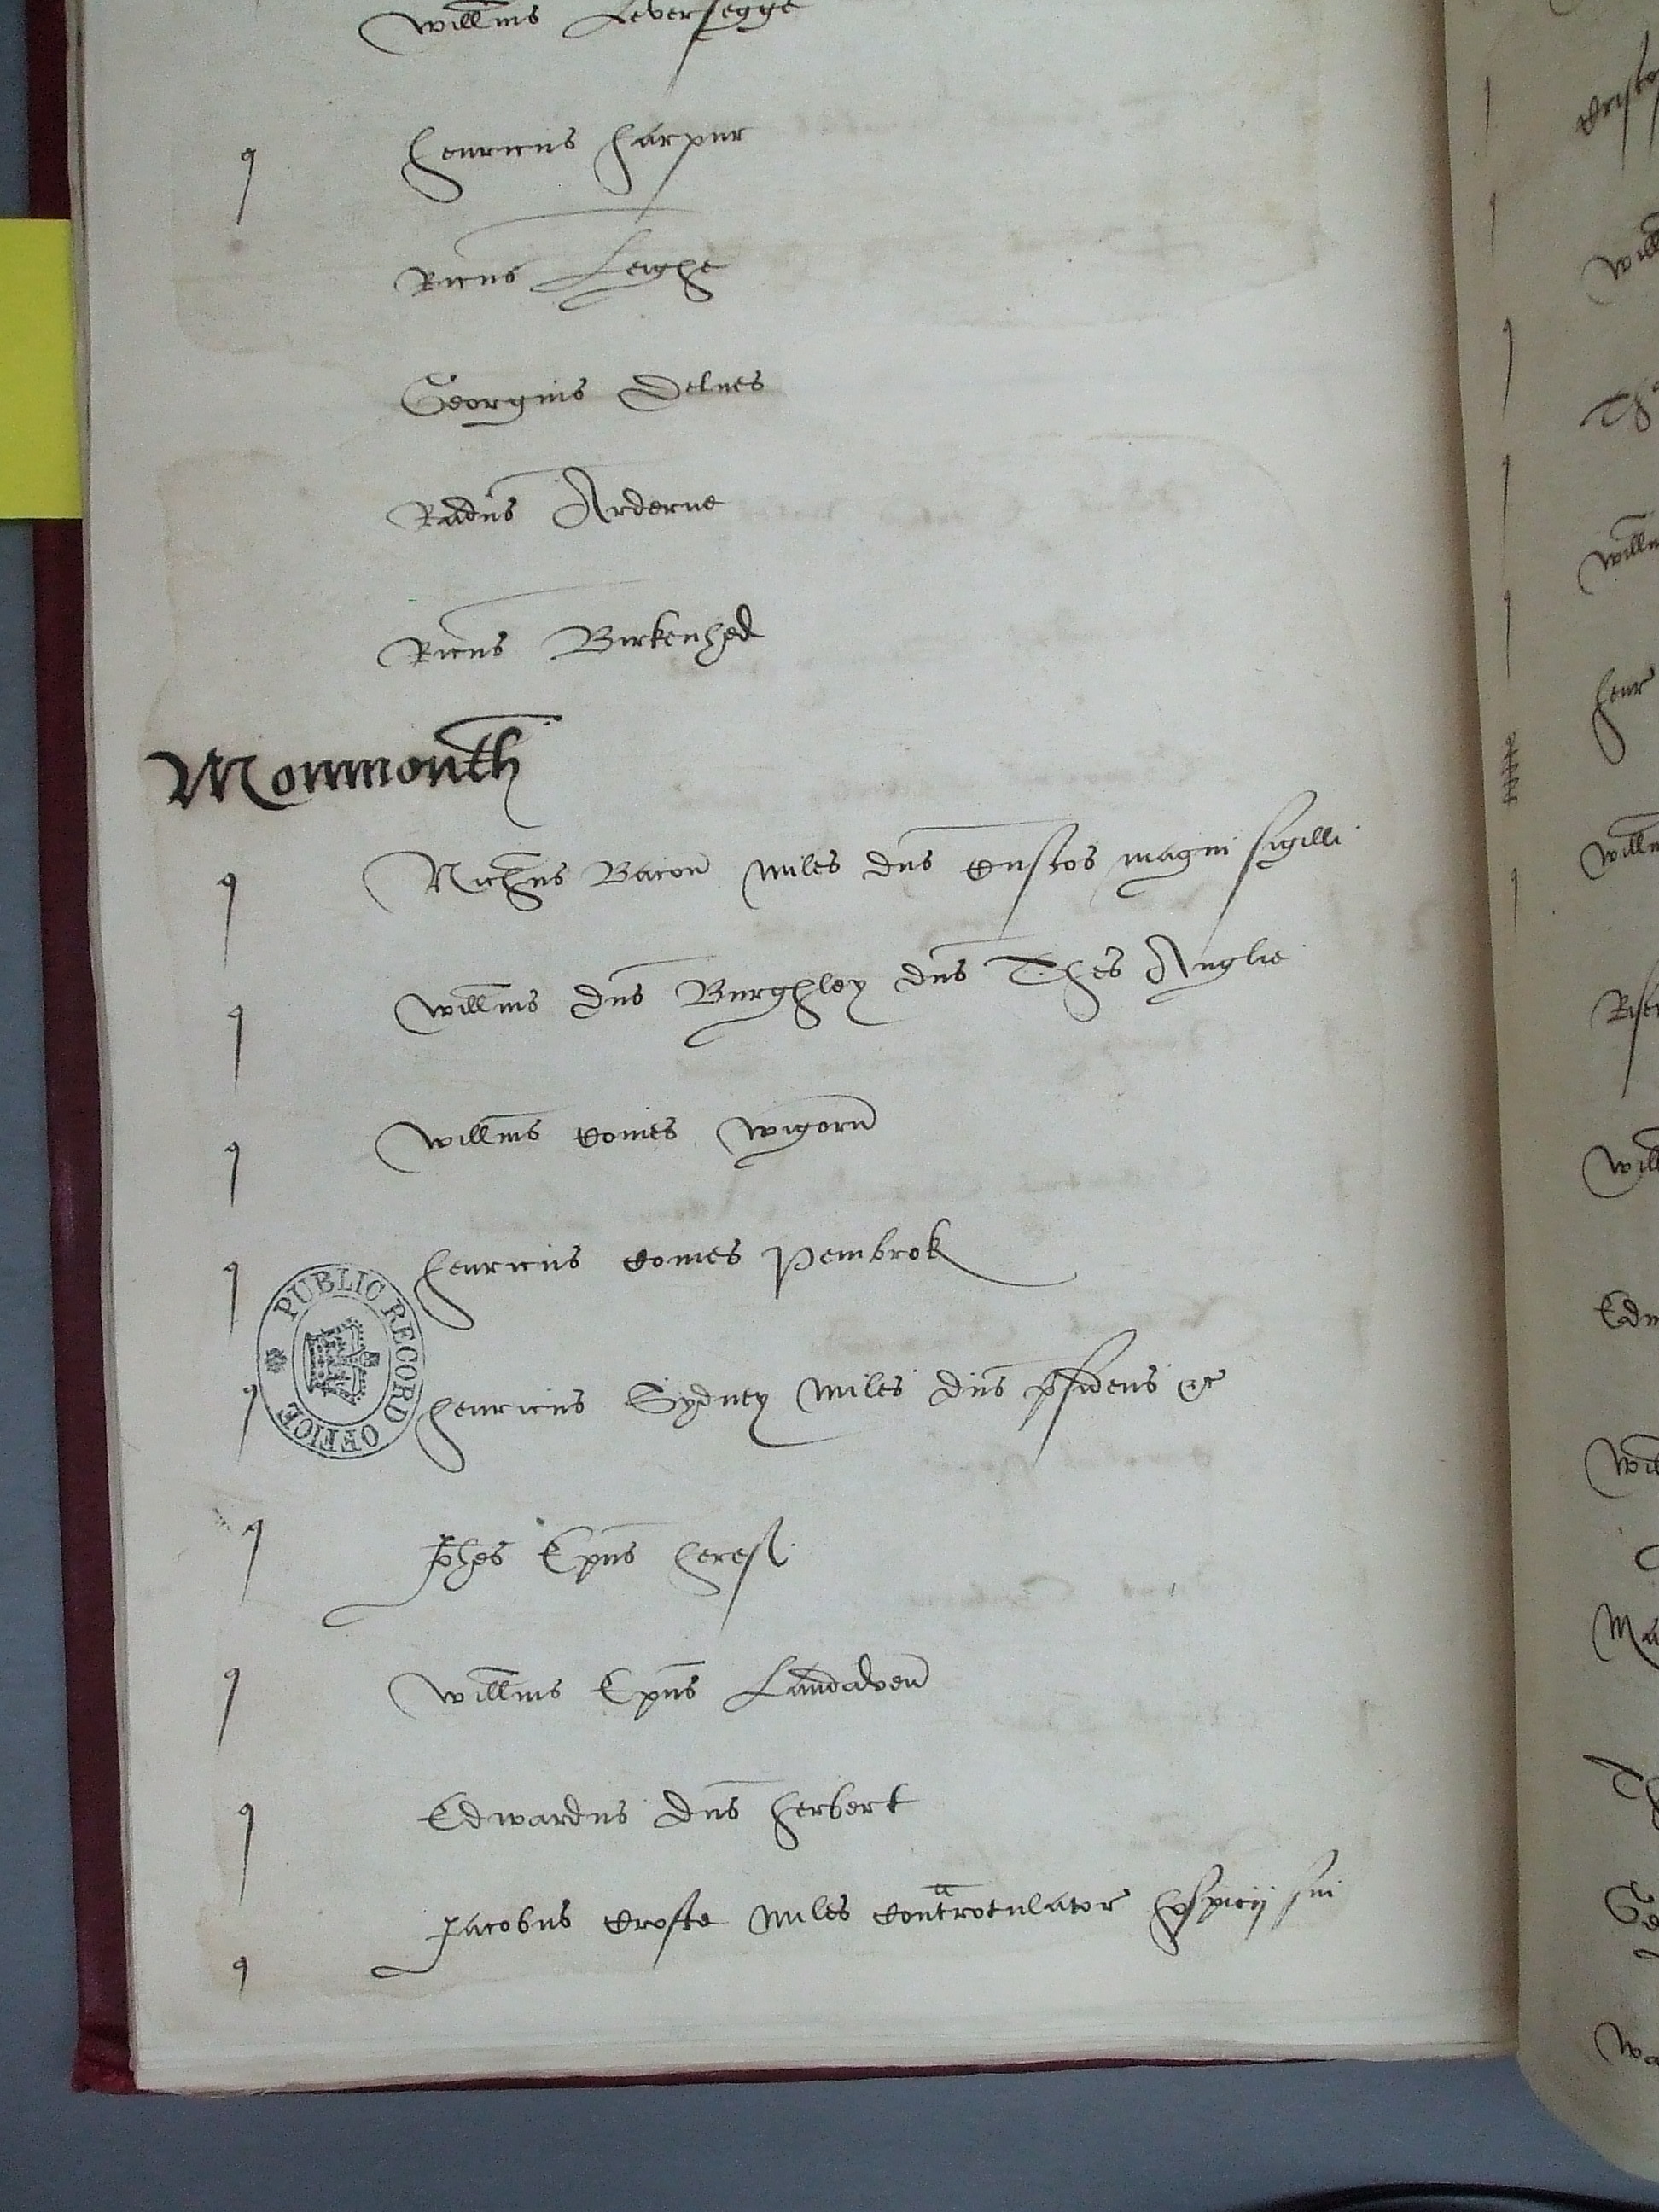 Willms Leversegge
q Henricus Harpur
Ricus Leighe
Georgius Delves
Radus Arderne
Ricus Birkenhed
Monmouth
q Nichus Bacon miles dns custos magni sigilli
q Willms dns Burghley dns Thes Anglie
q Willms comes Wigorn
q Henricus comes Pembrok
PUBLIC RECORD OFFICE
q Henricus Sydney miles dns psidens &c
q Johes Epus Heref
q Willms Epus Landaven
q Edwardus dns Herbert
q Jacobus Crofte miles contrarotulator hospicij sui